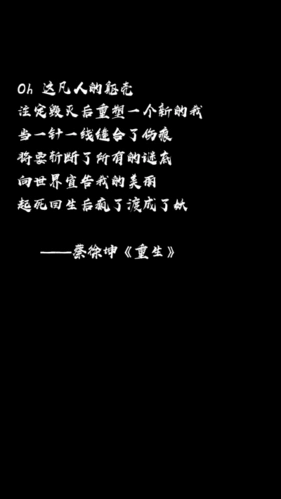 Oh 这凡人的躯壳
注定毁灭后重塑一个新的我
当一针一线缝合了伤痕
将要斩断了所有的谜底
向世界宣告我的美丽
起死回生后疯了演成了妖
——蔡徐坤《重生》